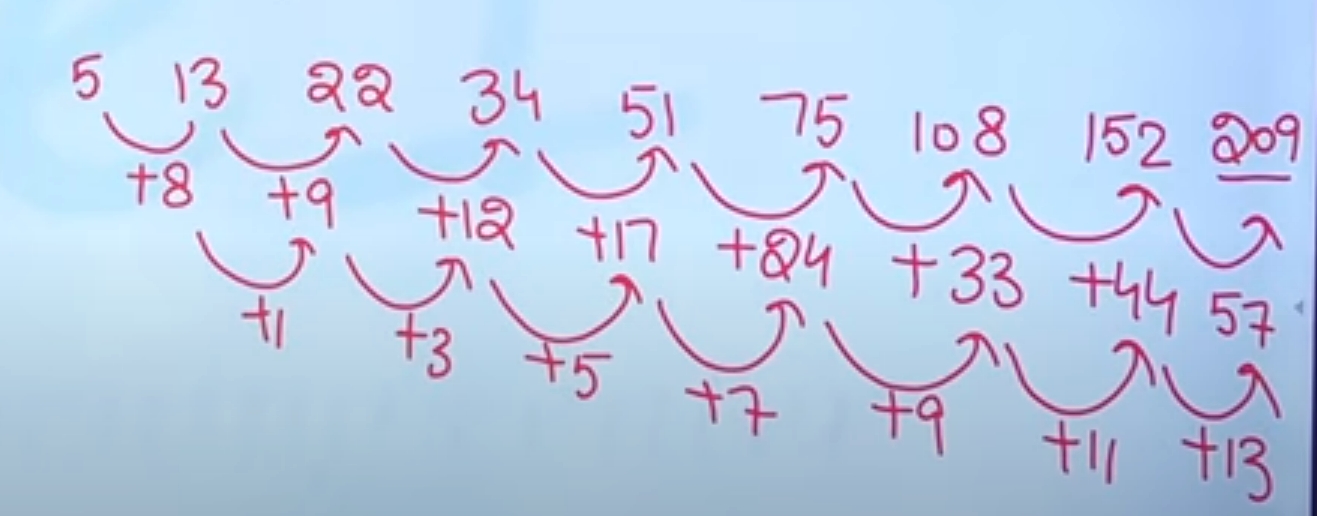 5 13 22 34 51 75 108 152 209
+8 +9 +12 +17 +24 +33 +44 57
+1 +3 +5 +7 +9 +11 +13